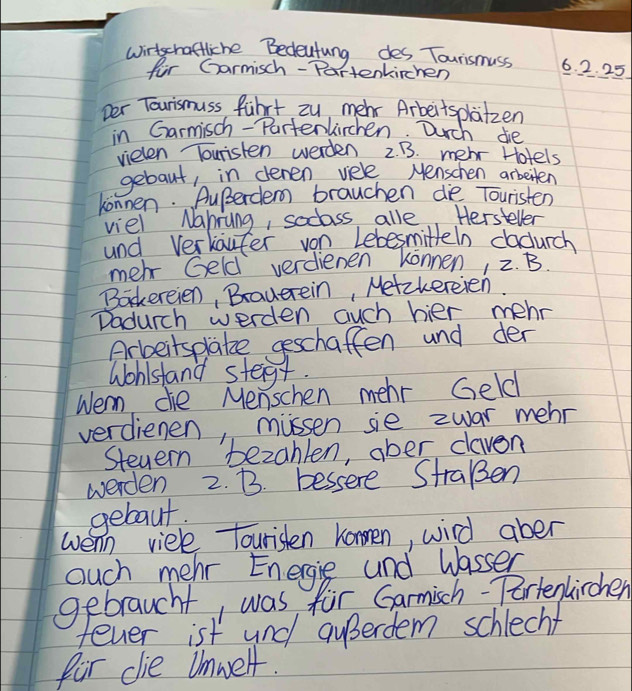 Wirtschaftliche Bedeutung des Tourismuss
für Garmisch-Partenkirchen 6.2.25
Der Tourismuss führt zu mehr Arbeitsplätzen
in Garmisch-Partenkirchen. Durch die
vielen Touristen werden z.B. mehr Hotels
gebaut, in denen viele Menschen arbeiten
können. Außerdem brauchen die Touristen
viel Nahrung, sodass alle Hersteller
und Verkäufer von Lebesmitteln dadurch
mehr Geld verdienen können, z.B.
Bäckereien, Brauerein, Metzkereien.
Dadurch werden auch hier mehr
Arbeitsplätze geschaffen und der
Wohlstand steigt.
Wenn die Menschen mehr Geld
verdienen, müssen sie zwar mehr
Steuern bezahlen, aber davon
werden z.B. bessere Straßen
gebaut.
Wenn viele Touristen kommen, wird aber
auch mehr Energie und Wasser
gebraucht, was für Garmisch-Partenkirchen
teuer ist und außerdem schlecht
für die Umwelt.